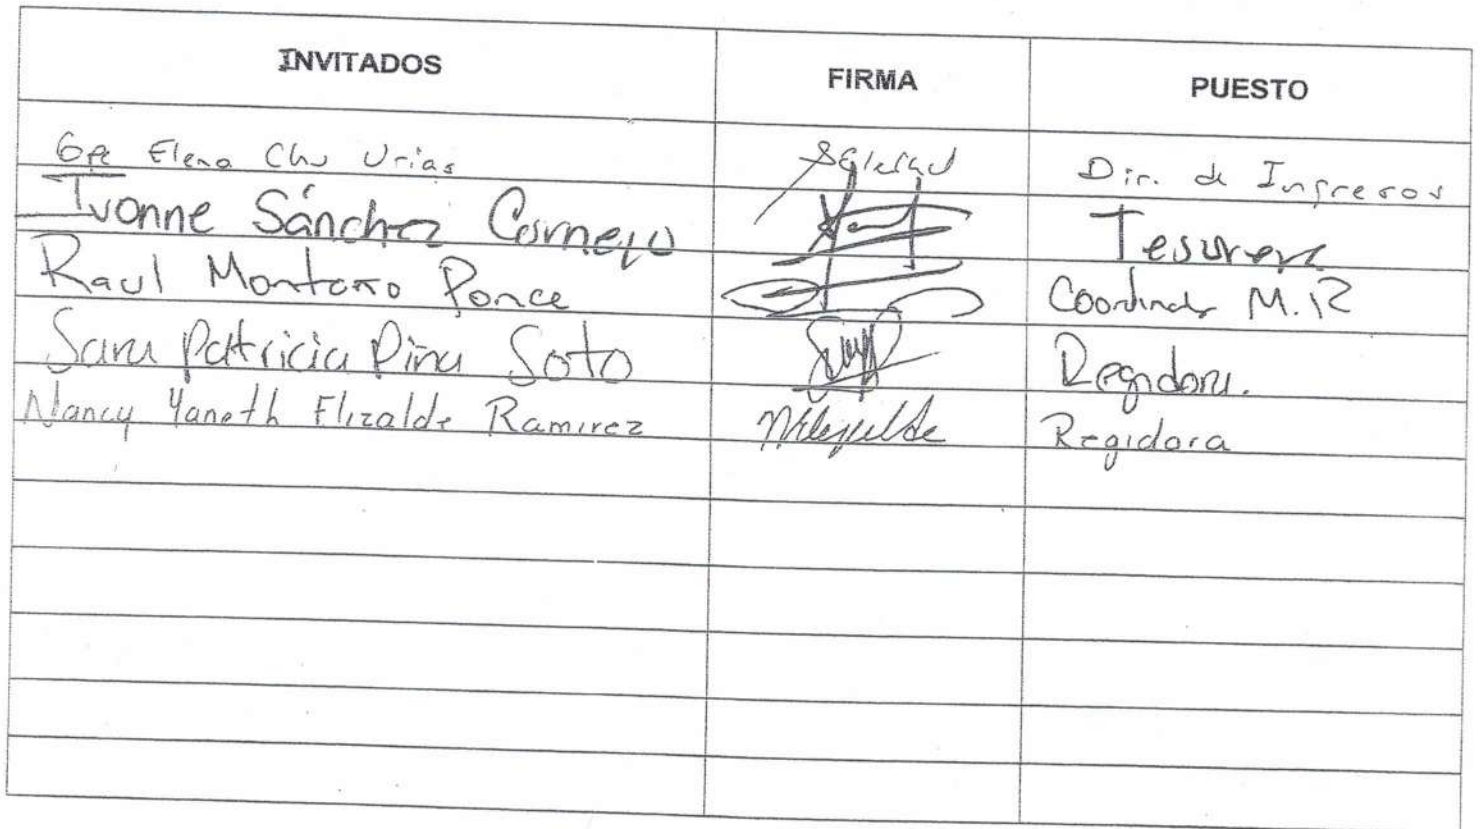 INVITADOS FIRMA PUESTO
Gpe Elena Chu Urias Dir. de Ingresos
Ivonne Sánchez Cornejo Tesorera
Raul Montaño Ponce Coordinador M.R
Sara Patricia Piña Soto Regidora.
Nancy Yaneth Elizalde Ramirez Regidora